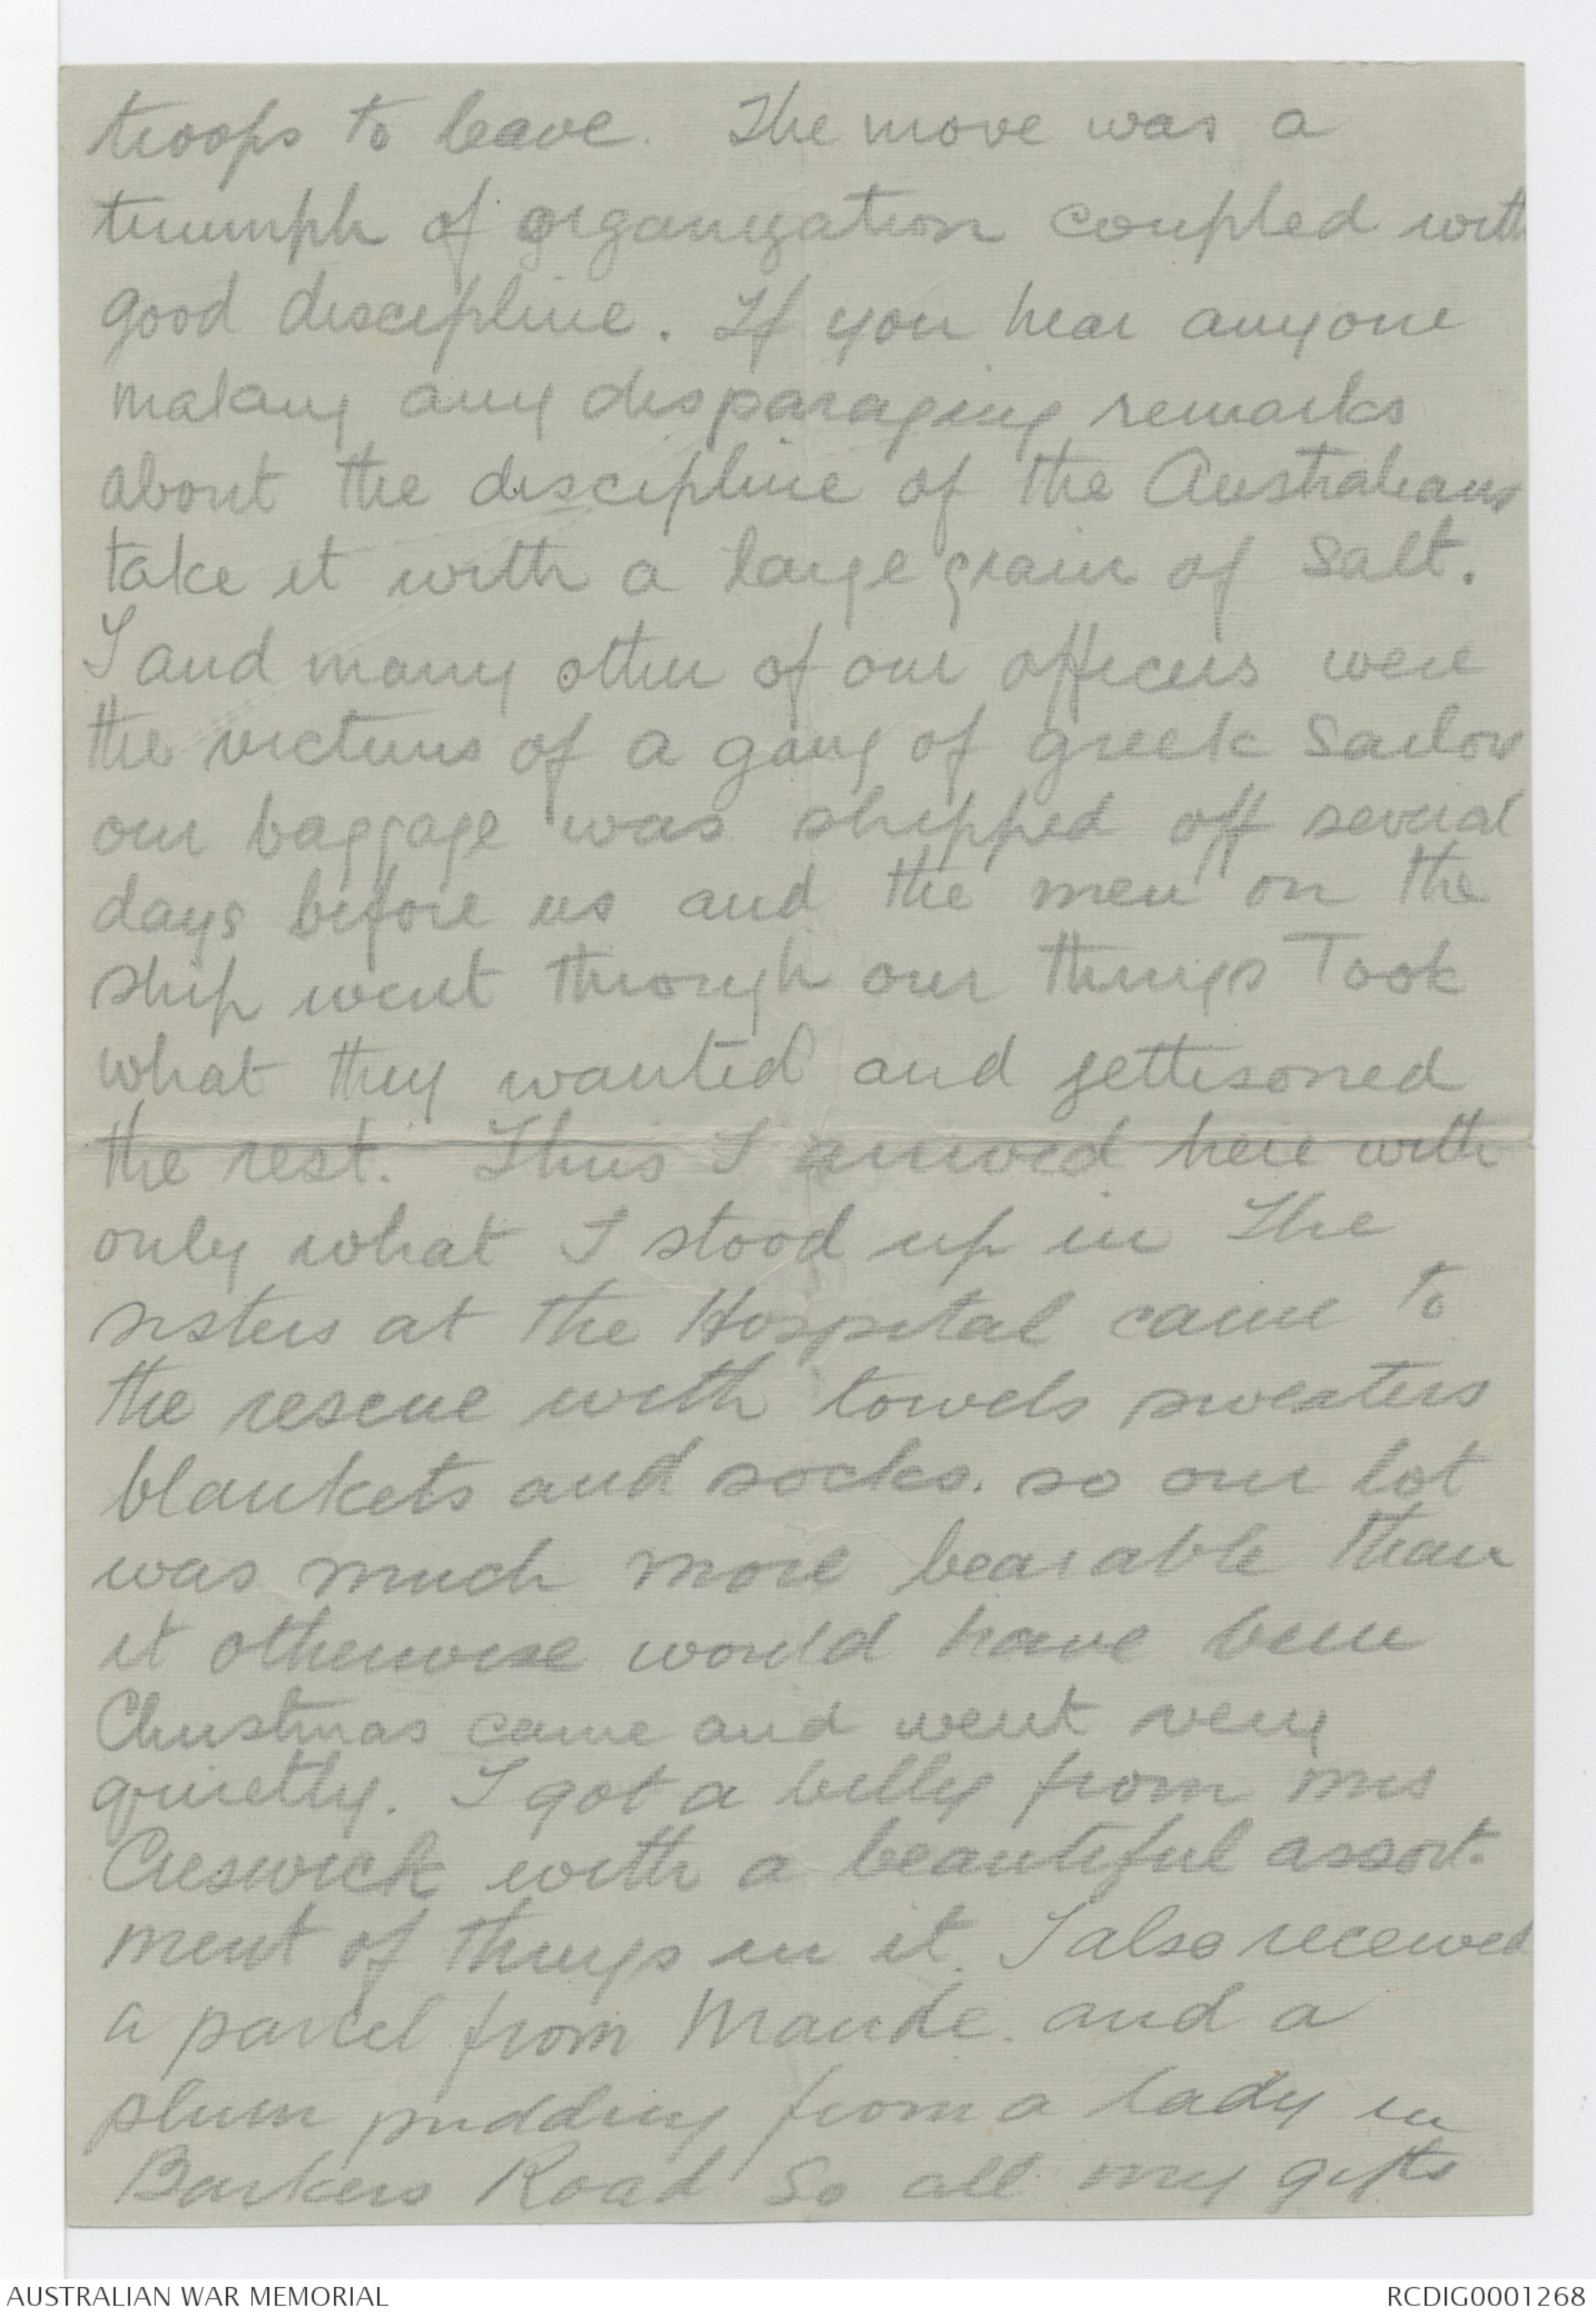 troops to leave. The move was a
triumph of organization coupled with
good discipline. If you hear anyone
making any disparaging remarks
about the discipline of the Australians
take it with a large grain of salt.
I and many other of our officers were
the victims of a gang of greek sailors
our baggage was shipped off several
days before us and the men on the
ship went through our things Took
what they wanted and jettisoned
the rest. Thus I arrived here with
only what I stood up in The
sisters at the Hospital came to
the rescue with towels sweaters
blankets and socks. so our lot
was much more bearable than
it otherwise would have been
Christmas came and went very
quietly. I got a billy from Mrs
Creswick with a beautiful assort-
ment of things in it. I also received
a parcel from Maude. and a
plum pudding from a lady in
Barkers Road So all my gifts
AUSTRALIAN WAR MEMORIAL
RCDIG0001268